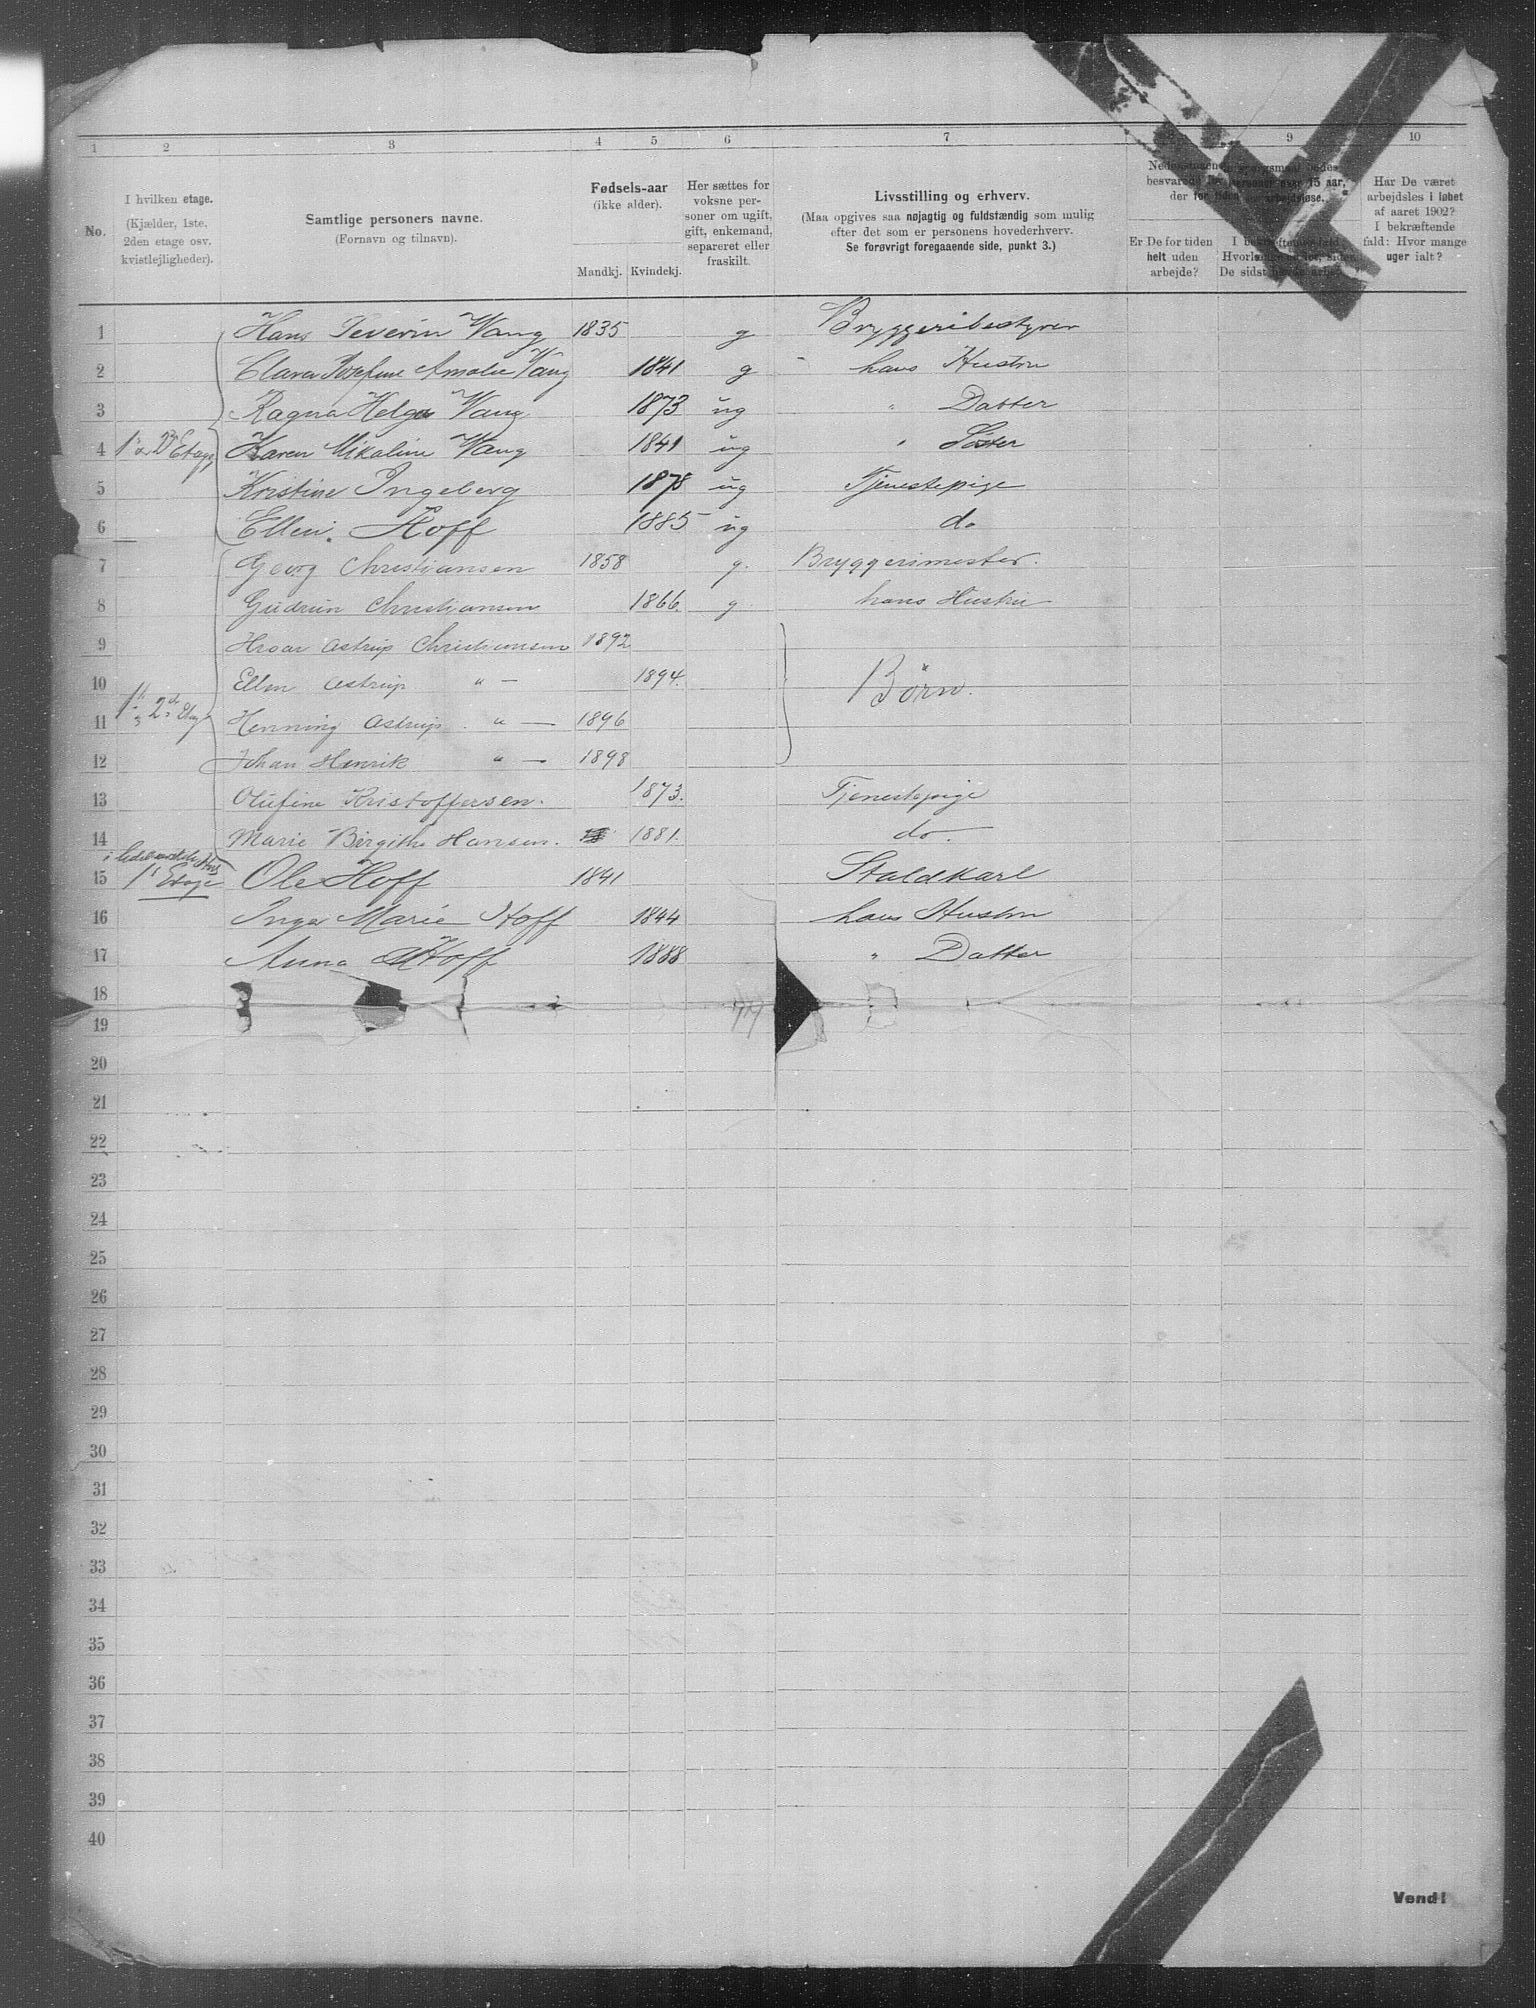 1 2 3 4 5 6 7 9 10
No.
I hvilken etage.
(Kjælder, 1ste,
2den etage osv.
kvistlejligheder).
Samtlige personers navne.
(Fornavn og tilnavn).
Fødsels-aar
(ikke alder).
Mandkj. Kvindekj.
Her sættes for
voksne per-
soner om ugift,
gift, enkemand,
separeret eller
fraskilt.
Livsstilling og erhverv.
(Maa opgives saa nøjagtig og fuldstændig som mulig
efter det som er personens hovederhverv.
Se forøvrigt foregaaende side, punkt 3.)
besvares
personer over 15 aar,
der for tiden arbejdsløse.
Er De for tiden
helt uden
arbejde?
I bekræftende fald
De sidst havde arbejde?
Har De været
arbejdsløs i løbet
af aaret 1902?
I bekræftende
fald: Hvor mange
uger ialt?
1 Hans Severin Wang 1835 g Bryggeribestyrer
2 Clara Josefine Amalie Wang 1841 g hans Hustru
3 Ragna Helga Wang 1873 ug " Datter
4 1ste & 2d Etage Karen Mikaline Wang 1841 ug " Søster
5 Kristine Ingeberg 1878 ug Tjenestepige
6 Ellen Hoff 1885 ug do
7 Georg Christiansen 1858 g. Bryggerimester.
8 Gudrun Christiansen 1866. g. hans Hustru
9 Hroar Astrup Christiansen 1892
10 Ellen Astrup " — 1894. Børn.
11 Henning Astrup " — 1896
12 Johan Henrik " — 1898
13 Olufine Kristoffersen. 1873. Tjenestepige
14 Marie Birgithe Hansen. 1881. do.
15 1st Etage Ole Hoff 1841 Staldkarl
16 Inger Marie Hoff 1844 hans Hustru
17 Anna Hoff 1888 " Datter
18
19
20
21
22
23
24
25
26
27
28
29
30
31
32
33
34
35
36
37
38
39
40
Vend!